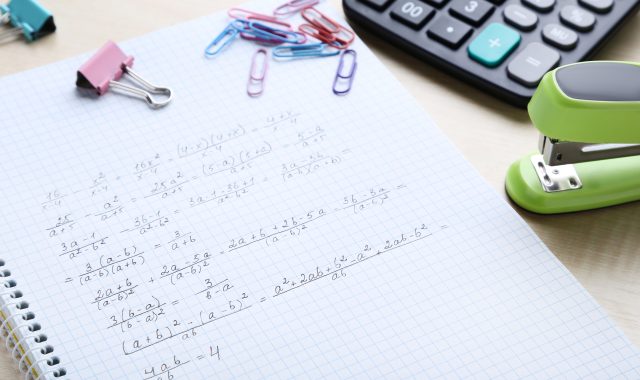 00 3
+
=
MU
16/x-4 - x²/x-4 = 16x²/x-4 = (4-x)(4+x)/x-4 = 4+x/x-4
25/a+5 - a²/a+5 = 25a²/a+5 = (5-a)(5+a)/a+5 5-a
3a-1/a²-b² - 3b-1/a²-b² = 3a-1-3b+1/a²-b² =
= 3(a-b)/(a-b)(a+b) = 3/a+b
2a+b/(a-b)² + 2a-5a/(a-b)² = 2a+b+2b-5a/(a-b)² = 3b-3a/(a-b)² =
3(b-a)/(b-a)² = 3/b-a
(a+b)²-(a-b)²/ab = a²+2ab+b²-a²+2ab-b²/ab =
4ab/ab = 4